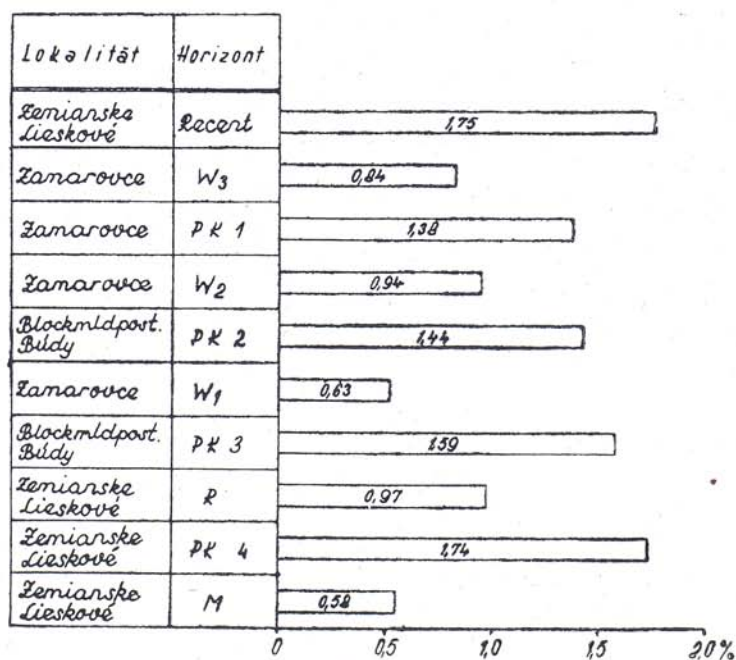 Lokalität Horizont
Zemianske
Lieskové Recent 1,75
Zamarovce W3 0,84
Zamarovce PK 1 1,38
Zamarovce W2 0,94
Blockmldpost.
Búdy PK 2 1,44
Zamarovce W1 0,63
Blockmldpost.
Búdy PK 3 1,59
Zemianske
Lieskové R 0,97
Zemianske
Lieskové PK 4 1,74
Zemianske
Lieskové M 0,58
0 0,5 1,0 1,5 2,0%